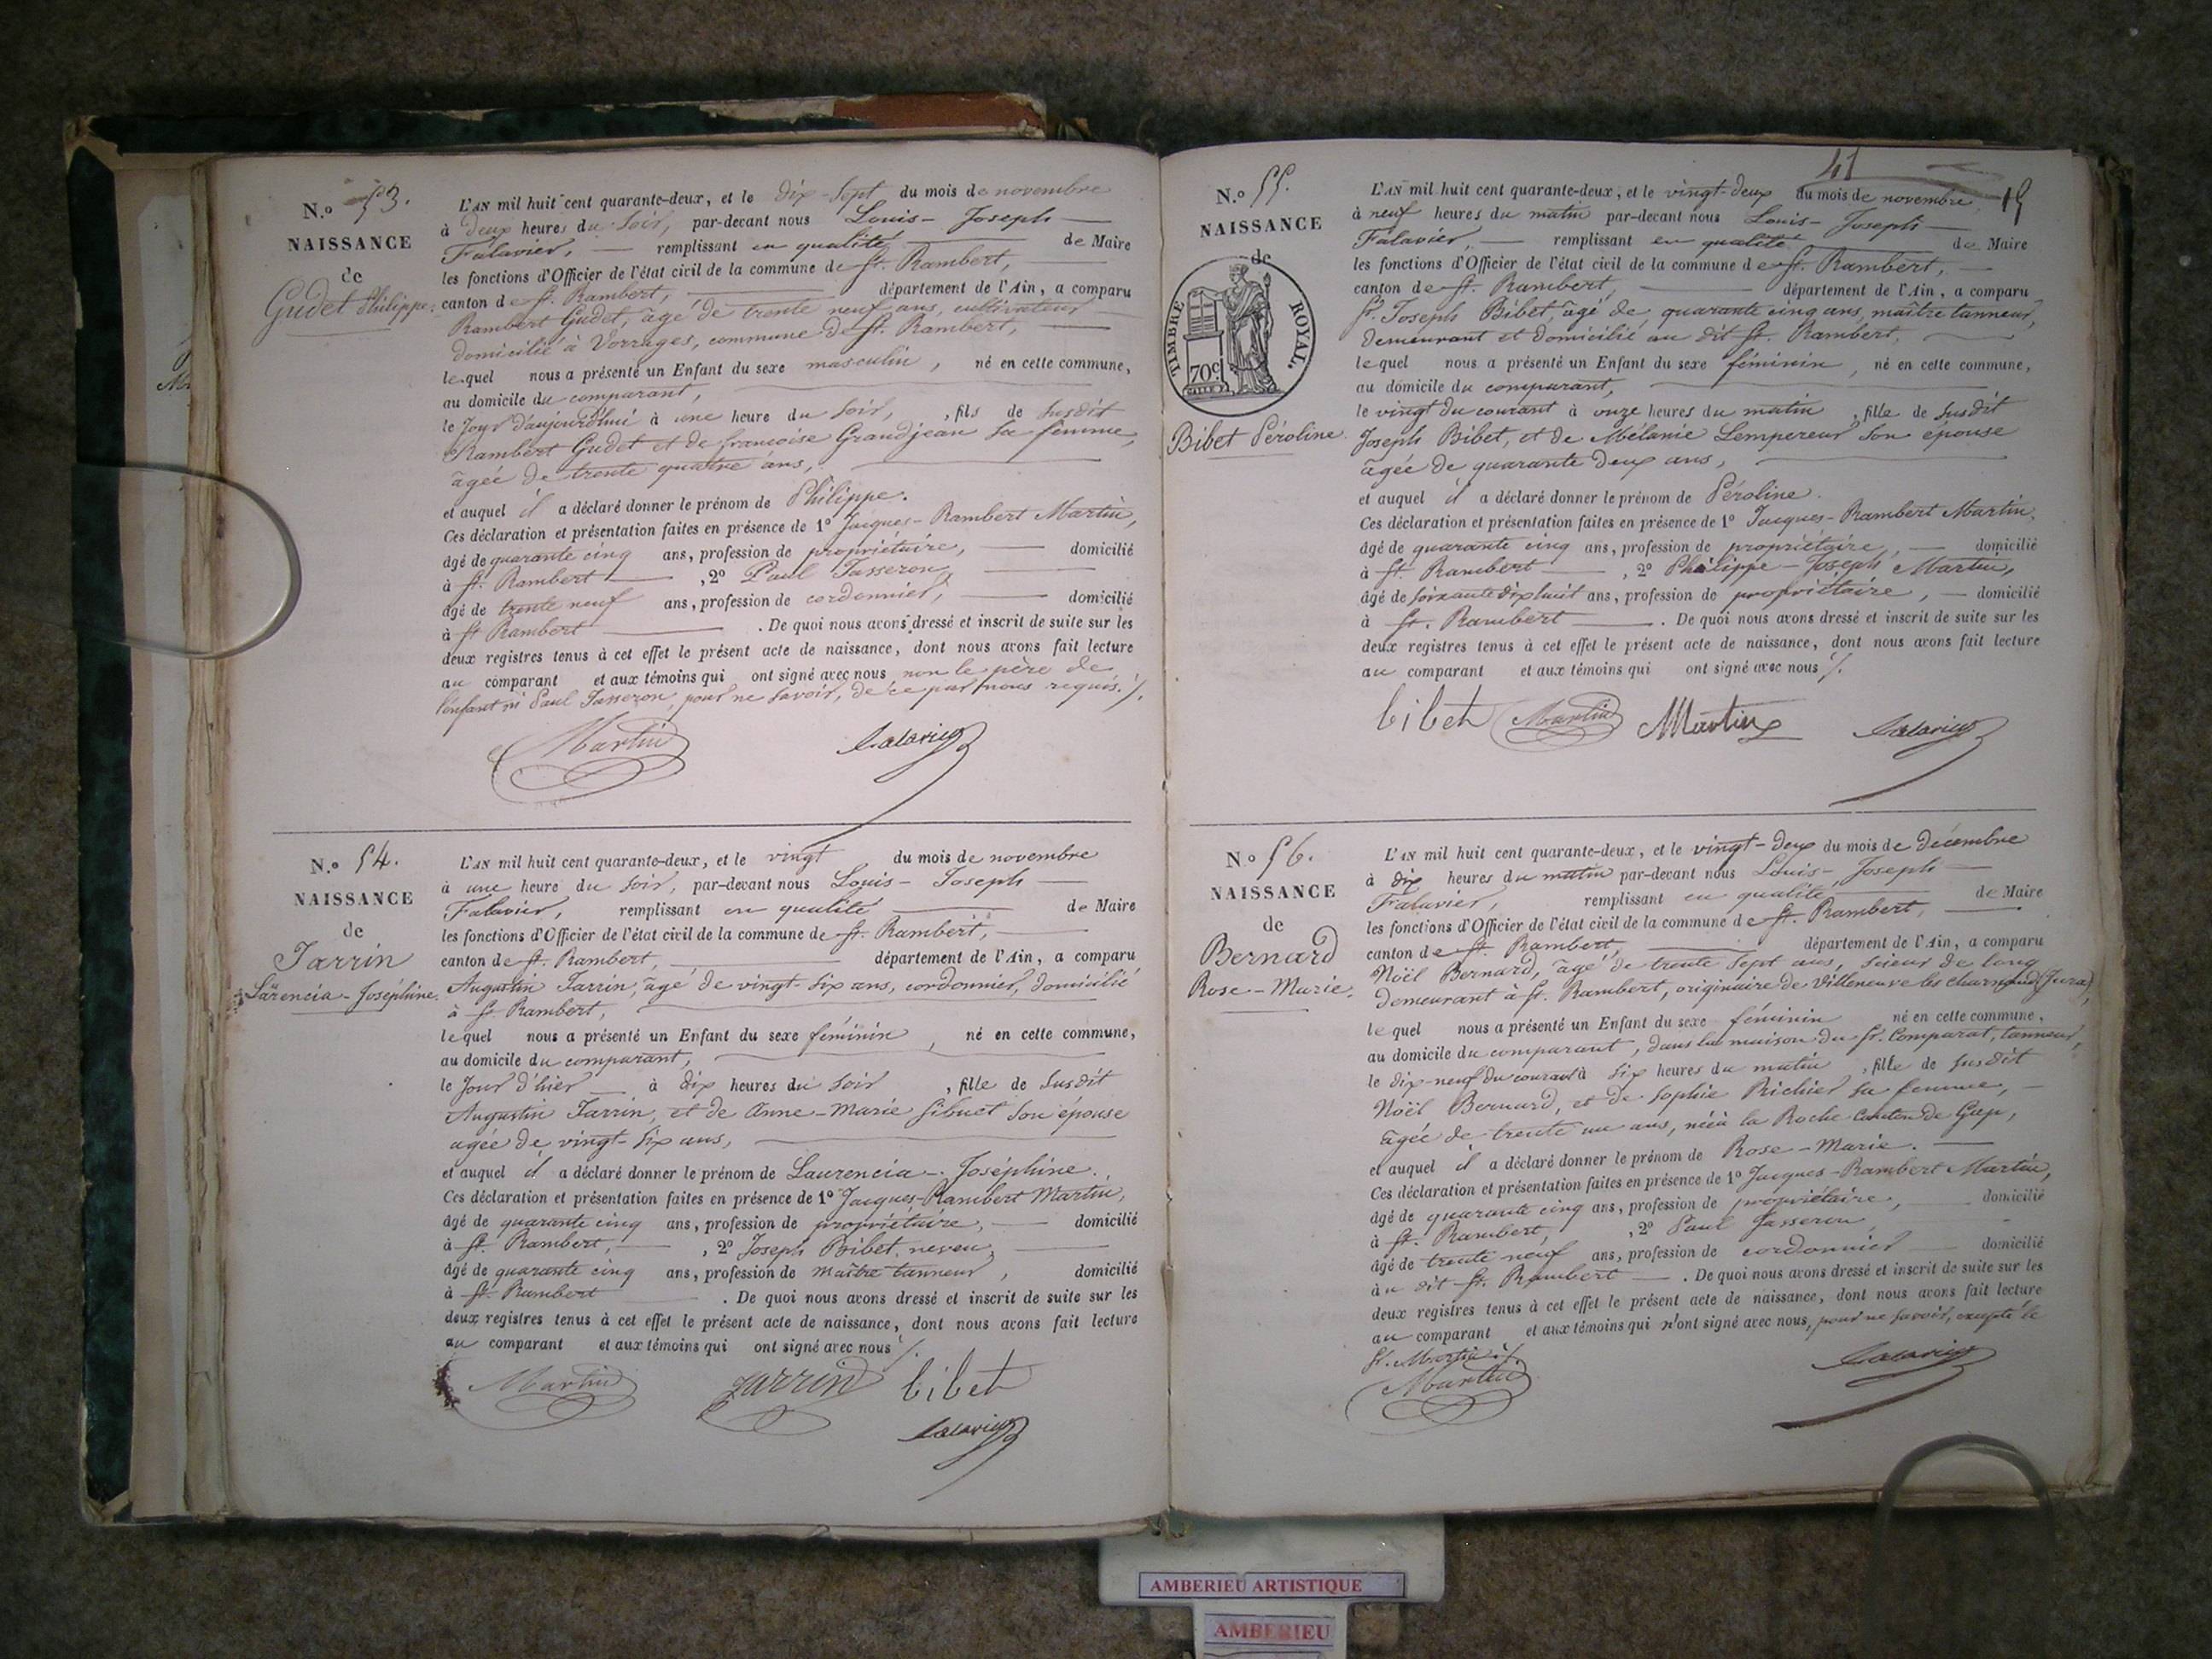 N.o 53.
NAISSANCE
de
Gudet Philippe.
L'AN mil huit cent quarante-deux, et le dix-sept du mois de novembre
à deux heures du soir, par-devant nous Louis-Joseph
Falavier, remplissant en qualité de Maire
les fonctions d'Officier de l'état civil de la commune de St. Rambert,
canton de St. Rambert, département de l'Ain, a comparu
Rambert Gudet, âgé de trente neuf ans, cultivateur
domicilié à Vorages, commune de St. Rambert,
lequel nous a présenté un Enfant du sexe masculin, né en cette commune,
au domicile du comparant,
le jour d'aujourd'hui à une heure du soir, , fils de susdit
Rambert Gudet et de francoise Grandjean sa femme,
âgée de trente quatre ans,
et auquel il a déclaré donner le prénom de Philippe.
Ces déclaration et présentation faites en présence de 1o Jacques-Rambert Martin,
âgé de quarante cinq ans, profession de propriétaire, domicilié
à St. Rambert , 2o Paul Tasseron,
âgé de trente neuf ans, profession de cordonnier, domicilié
à St Rambert . De quoi nous avons dressé et inscrit de suite sur les
deux registres tenus à cet effet le présent acte de naissance, dont nous avons fait lecture
au comparant et aux témoins qui ont signé avec nous non le père de
l'enfant ni Paul Tasseron, pour ne savoir, de ce par nous requis ./.
Martin Falavier
N.o 54.
NAISSANCE
de
Jarrin
Laurencia-Joséphine.
L'AN mil huit cent quarante-deux, et le vingt du mois de novembre
à une heure du soir, par-devant nous Louis-Joseph
Falavier, remplissant en qualité de Maire
les fonctions d'Officier de l'état civil de la commune de St. Rambert,
canton de St. Rambert, département de l'Ain, a comparu
Augustin Jarrin, âgé de vingt-six ans, cordonnier, domicilié
à St. Rambert,
lequel nous a présenté un Enfant du sexe féminin, né en cette commune,
au domicile du comparant,
le jour d'hier à dix heures du soir , fille de susdit
Augustin Jarrin, et de Anne-Marie Sibuet son épouse
agée de vingt-six ans,
et auquel il a déclaré donner le prénom de Laurencia-Joséphine.
Ces déclaration et présentation faites en présence de 1o Jacques-Rambert Martin,
âgé de quarante cinq ans, profession de propriétaire, domicilié
à St. Rambert, , 2o Joseph Bibet neveu,
âgé de quarante cinq ans, profession de maître tanneur, domicilié
à St. Rambert . De quoi nous avons dressé et inscrit de suite sur les
deux registres tenus à cet effet le présent acte de naissance, dont nous avons fait lecture
au comparant et aux témoins qui ont signé avec nous ./.
Martin Jarrin bibet
Falavier
41
N.o 55.
NAISSANCE
de
TIMBRE ROYAL.
70c
Bibet Péroline.
L'AN mil huit cent quarante-deux, et le vingt-deux du mois de novembre
à neuf heures du matin par-devant nous Louis-Joseph
Falavier, remplissant en qualité de Maire
les fonctions d'Officier de l'état civil de la commune de St. Rambert,
canton de St. Rambert, département de l'Ain, a comparu
Sr. Joseph Bibet, âgé de quarante cinq ans, maître tanneur,
demeurant et domicilié au dit St. Rambert,
lequel nous a présenté un Enfant du sexe féminin, né en cette commune,
au domicile du comparant,
le vingt du courant à onze heures du matin , fille de susdit
Joseph Bibet, et de Mélanie Lempereur son épouse
âgée de quarante deux ans,
et auquel il a déclaré donner le prénom de Péroline.
Ces déclaration et présentation faites en présence de 1o Jacques-Rambert Martin,
âgé de quarante cinq ans, profession de propriétaire, domicilié
à St. Rambert , 2o Philippe-Joseph Martin,
âgé de soixante dix huit ans, profession de propriétaire, domicilié
à St. Rambert . De quoi nous avons dressé et inscrit de suite sur les
deux registres tenus à cet effet le présent acte de naissance, dont nous avons fait lecture
au comparant et aux témoins qui ont signé avec nous ./.
bibet Martin Martin Falavier
No 56.
NAISSANCE
de
Bernard
Rose-Marie.
L'AN mil huit cent quarante-deux, et le vingt-deux du mois de décembre
à dix heures du matin par-devant nous Louis-Joseph
Falavier, remplissant en qualité de Maire
les fonctions d'Officier de l'état civil de la commune de St. Rambert,
canton de St. Rambert, département de l'Ain, a comparu
Noël Bernard, âgé de trente sept ans, scieur de long
demeurant à St. Rambert, originaire de Villeneuve les charnaud (Jura),
lequel nous a présenté un Enfant du sexe féminin né en cette commune,
au domicile du comparant, dans la maison du Sr. Comparat, tanneur,
le dix-neuf du courant à six heures du matin , fille de susdit
Noël Bernard, et de Sophie Richier sa femme,
âgée de trente un ans, née à la Roche canton de Gap,
et auquel il a déclaré donner le prénom de Rose-Marie.
Ces déclaration et présentation faites en présence de 1o Jacques-Rambert Martin,
âgé de quarante cinq ans, profession de propriétaire, domicilié
à St. Rambert, , 2o Paul Tasseron,
âgé de trente neuf ans, profession de cordonnier domicilié
au dit St. Rambert . De quoi nous avons dressé et inscrit de suite sur les
deux registres tenus à cet effet le présent acte de naissance, dont nous avons fait lecture
au comparant et aux témoins qui n'ont signé avec nous, pour ne savoir, excepté le
Sr. Martin ./.
Martin Falavier
AMBERIEU ARTISTIQUE
AMBERIEU